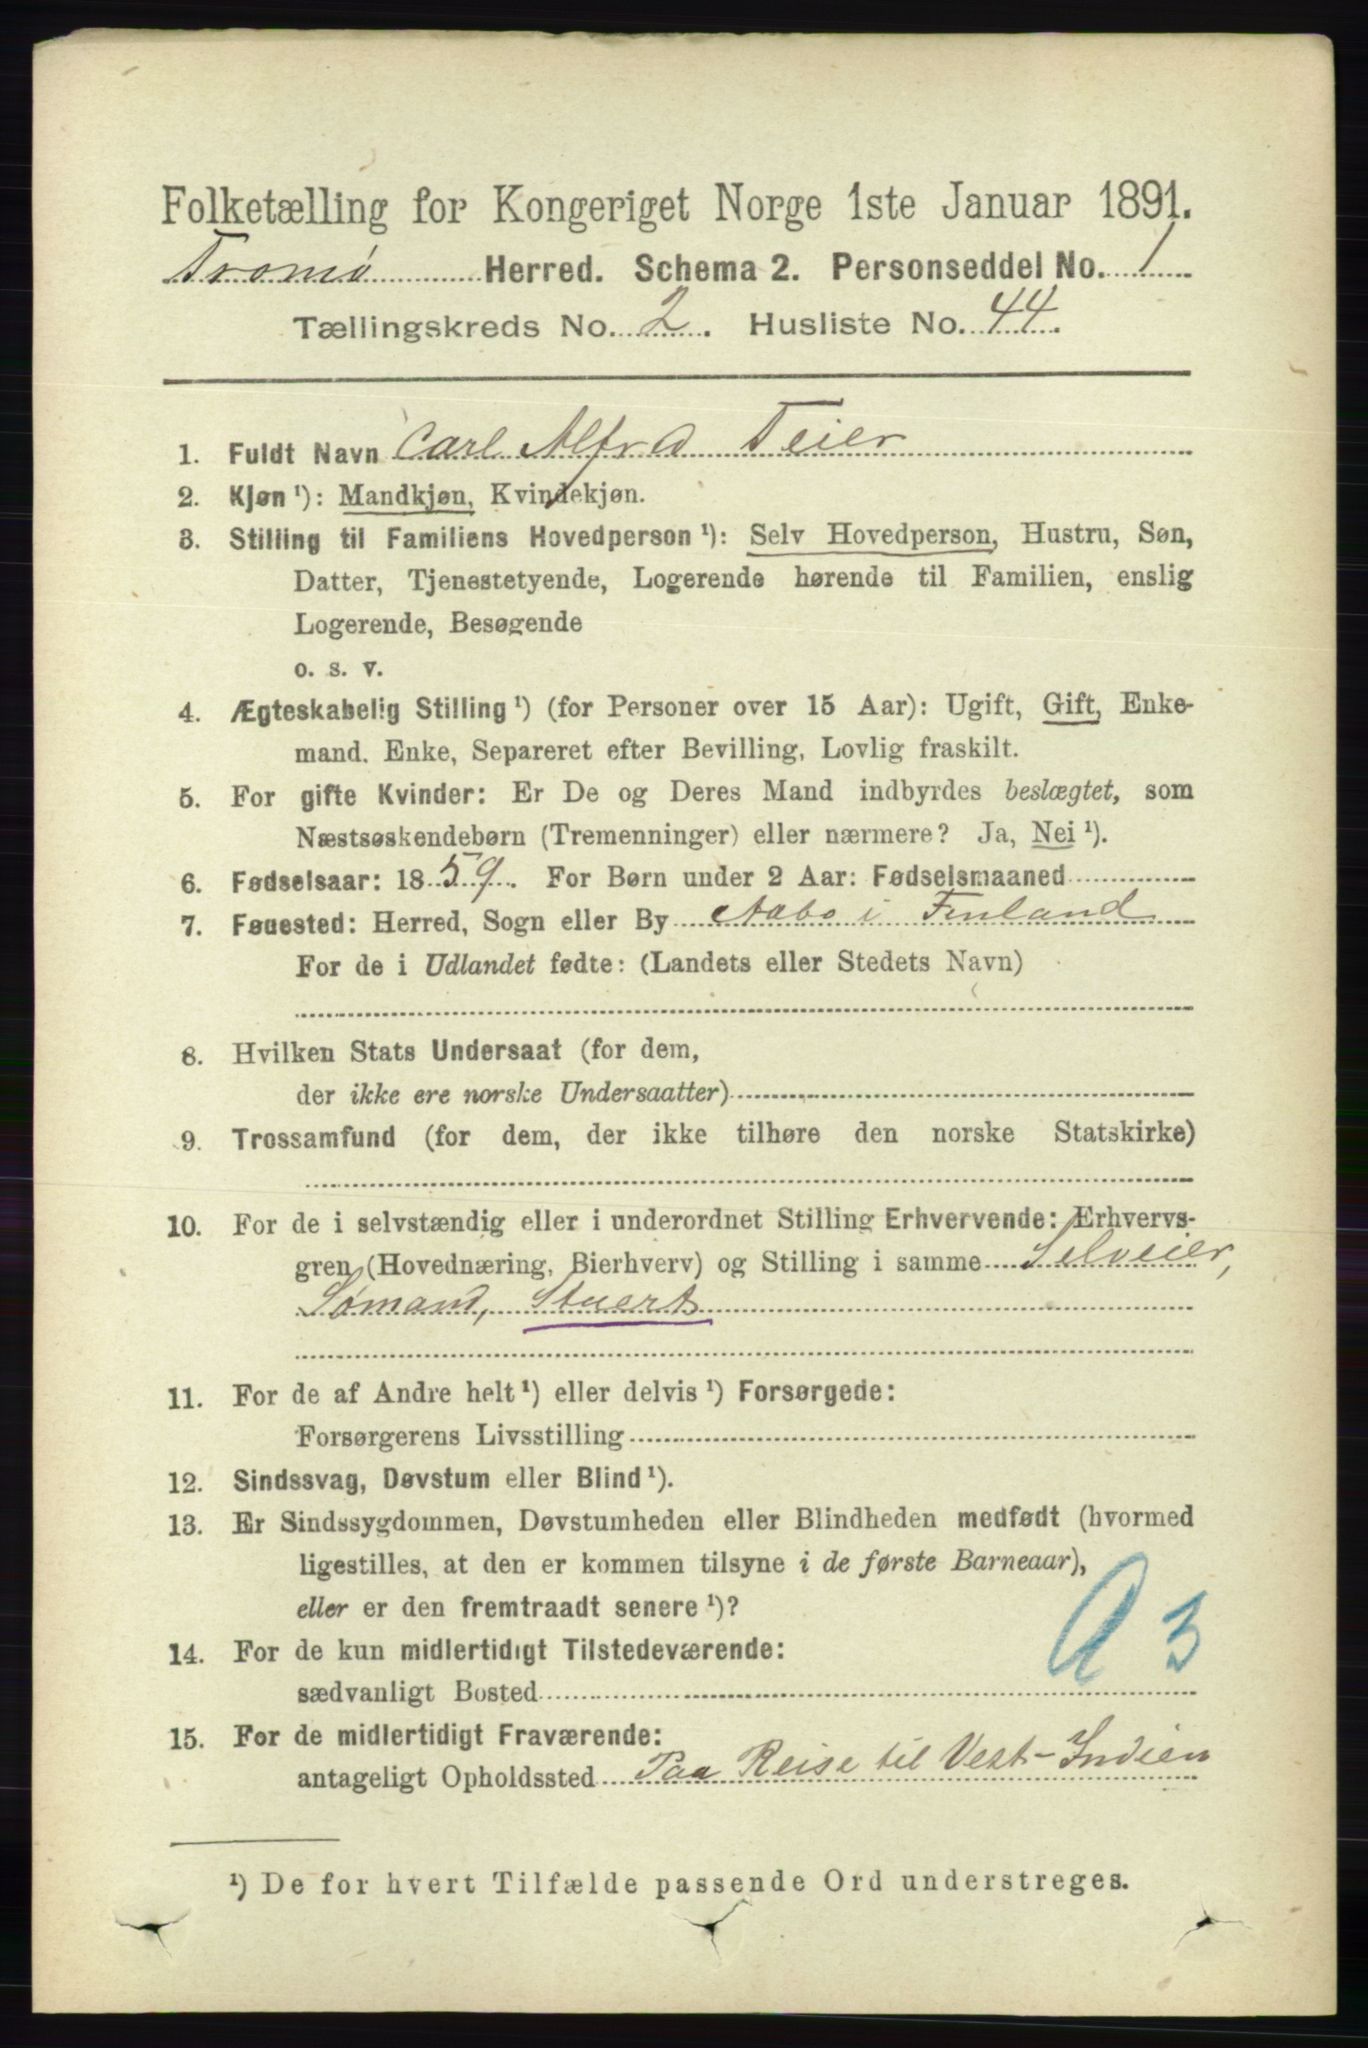 Folketælling for Kongeriget Norge 1ste Januar 1891.
Tromø Herred. Schema 2. Personseddel No. 1
Tællingskreds No. 2. Husliste No. 44.
1. Fuldt Navn Carl Alfred Teier
2. Kjøn ¹): Mandkjøn, Kvindekjøn.
3. Stilling til Familiens Hovedperson ¹): Selv Hovedperson, Hustru, Søn,
Datter, Tjenestetyende, Logerende hørende til Familien, enslig
Logerende, Besøgende
o. s. v.
4. Ægteskabelig Stilling ¹) (for Personer over 15 Aar): Ugift, Gift, Enke-
mand. Enke, Separeret efter Bevilling, Lovlig fraskilt.
5. For gifte Kvinder: Er De og Deres Mand indbyrdes beslægtet, som
Næstsøskendebørn (Tremenninger) eller nærmere? Ja, Nei ¹).
6. Fødselsaar: 1859. For Børn under 2 Aar: Fødselsmaaned
7. Føuested: Herred, Sogn eller By Aabo i Finland
For de i Udlandet fødte: (Landets eller Stedets Navn)
8. Hvilken Stats Undersaat (for dem,
der ikke ere norske Undersaatter)
9. Trossamfund (for dem, der ikke tilhøre den norske Statskirke)
10. For de i selvstændig eller i underordnet Stilling Erhvervende: Erhvervs-
gren (Hovednæring, Bierhverv) og Stilling i samme Selveier,
Sømand, Stuert
11. For de af Andre helt ¹) eller delvis ¹) Forsørgede:
Forsørgerens Livsstilling
12. Sindssvag, Døvstum eller Blind ¹).
13. Er Sindssygdommen, Døvstumheden eller Blindheden medfødt (hvormed
ligestilles, at den er kommen tilsyne i de første Barneaar),
eller er den fremtraadt senere ¹)?
A 3
14. For de kun midlertidigt Tilstedeværende:
sædvanligt Bosted
15. For de midlertidigt Fraværende:
antageligt Opholdssted Paa Reise til Vest-Indien
¹) De for hvert Tilfælde passende Ord understreges.